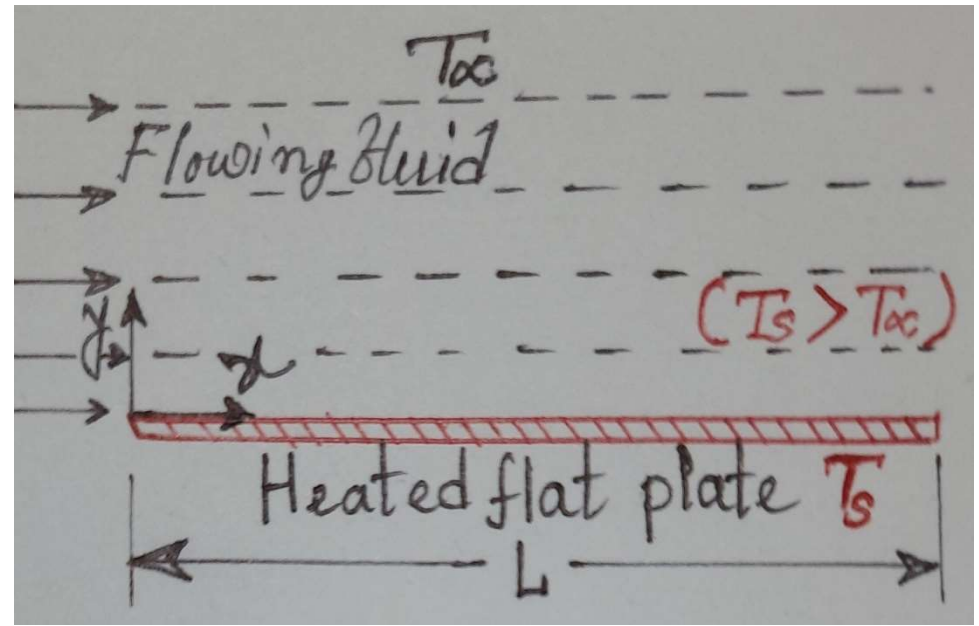 T∞
Flowing fluid
(Ts > T∞)
y
x
Heated flat plate Ts
L